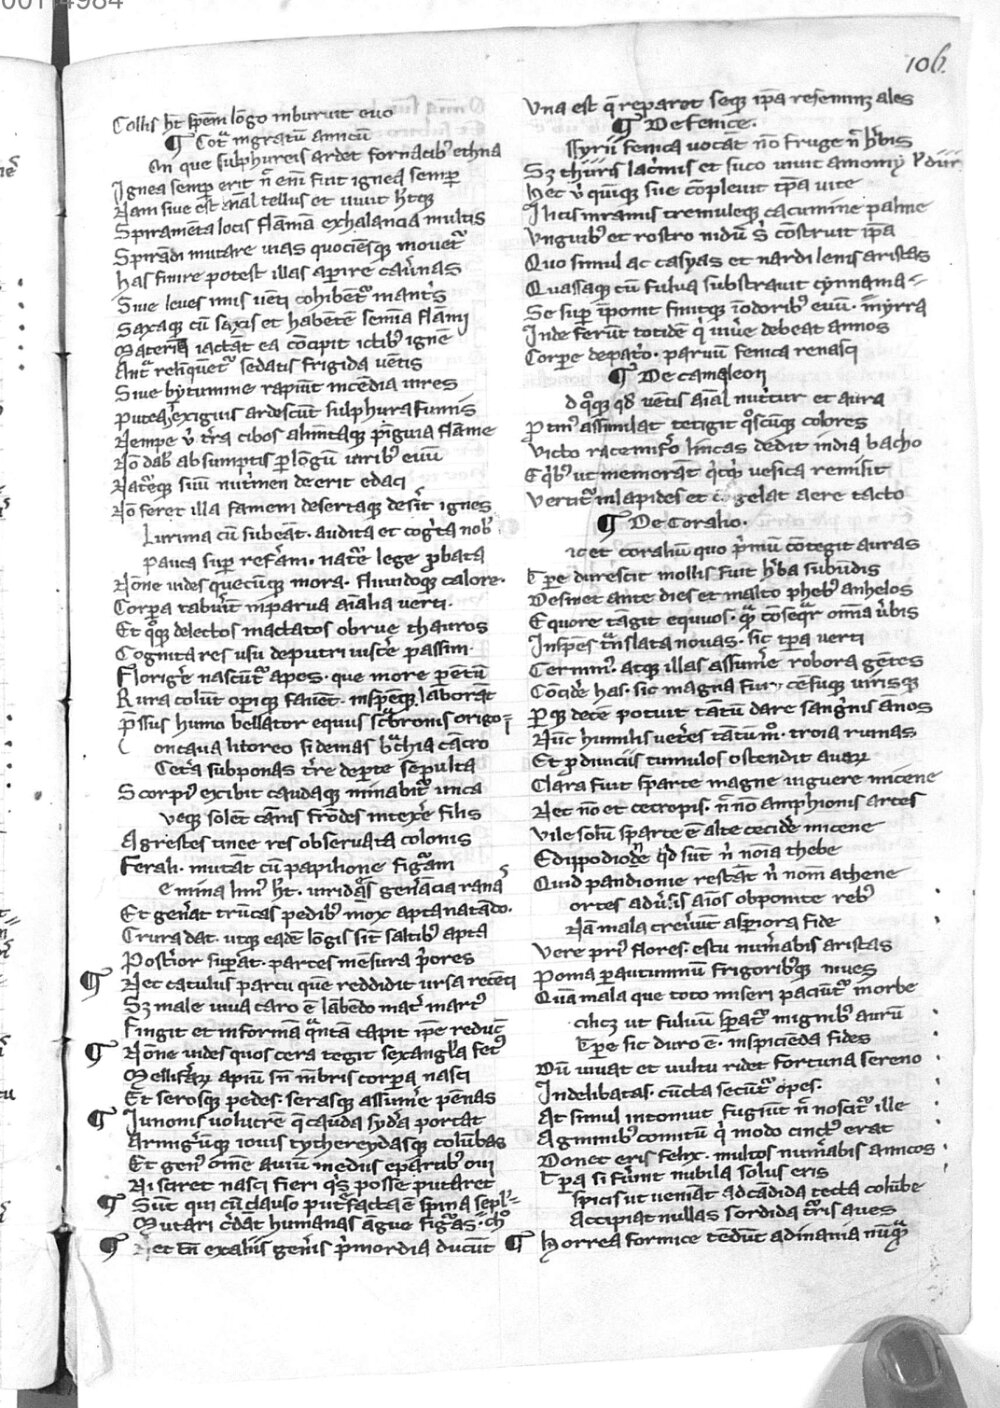 106.
Collis ht spem longo inburuit euo
¶ Cont ingratum amicum
An que sulphureis ardet fornacibꝰ ethna
Ignea semꝑ erit n̄ em̄ fuit ignea semꝑ
Nam siue est aīal tellus et uiuit htqꝫ
Spiramēta locis flāmā exhalancia multis
Spirādi mutare uias quociēsqꝫ mouet᷑
has finire potest illas aꝑire cau̾nas
Siue leues imis uēti cohibēt᷑ i antris
Saxaqꝫ cū saxis et habētē semīa flāmī
Materiā iactāt ea cōcipit ictibꝰ ignē
Ant᷑ relīquēt᷑ sedatis frigida uētis
Siue bytumine rapiūt incēdia uires
puteaqꝫ exiguis ardescūt sulphura fumis
Nempe u̾ tr̄a cibos alimētaqꝫ pīguia flāme
Nō dab̾ absumptis ꝑ lōgū uiribꝰ euū
Nat᷑eqꝫ suū nut᷑imen deerit edaci
Nō feret illa famem desertaqꝫ des̾it ignes
Lurima cū subeāt. audita et cog̾ta nob̾
pauca suꝑ ref̾am. nat᷑e lege ꝓbata
Nōne uides quecūqꝫ mora. fluuidoqꝫ calore.
Corꝑa tabu̾īt in parua aīalia uerti.
Et qͦqꝫ delectos mactatos obrue thauros
Cognita res usu de putri uisc̾e passim.
Florige nascūt᷑ apes. que more parētū
Rura colūt oꝑiqꝫ fauēt. inspēqꝫ laborāt
p̄ssus humo bellator equus scrabronis origo ē
oncaua litoreo si demas bͣchia cācro
Cet̾a subponas t̾re de ꝑte sepulta
Scorpiꝰ exibit caudaqꝫ minabit᷑ unca
ueqꝫ solēt canis frōdes intex̾e filis
Agrestes tinee res obseruata colonis
Ferali. mutāt cū papilione figͣam
emina limꝰ ht. uiridāš gen̾ācia ranaš
Et gen̾at trūcas pedibꝰ mox apta natādo.
Crura dat. utqꝫ eadē lōgis sīt saltibꝰ apta
Post̾ior suꝑat. partes mēsura p̾ores
¶ Nec catulus partu que reddidit ursa recēti
Sꝫ male uiua caro ē lābēdo mat̾ i artꝰ
Fingit et in formā qͣntā capit ip̄e reduc̄
¶ Nōne uides quos cera tegit sexangl̾a fetꝰ
Mellif̾aꝝ apiū sn̄ mēbris corꝑa nasci
Et serosqꝫ pedes. serasqꝫ assum̾e pēnas
¶ Iunonis uolucrē q̄ cauda syd̾a portat
Armig̾ūqꝫ iouis cythereydasqꝫ colūbas
Et genꝰ om̄e auiū mediis e partibꝰ oui
Ni sciret nasci fieri qͥs posse putaret
¶ Sūt qui cū clauso put᷑facta ē spina seplcͦ
Mutari c̾dāt humanas āgue figͣas.
¶ Nec tn̄ ex aliis gen̾is p̾mordia ducūt
Vna est q̄ reparet seqꝫ ip̄a reseminꝫ ales
¶ De fenice.
ssyrii fenica uocāt nō fruge n̄ h̾bis
Sꝫ thuris lac̾mis et suco uiuit amomy
hec u̾ quīqꝫ sue cōpleuit tp̄a uite
Ilicis in ramis tremuleqꝫ cacumine palme
Vnguibꝰ et rostro nidū s̾ cōstruit ip̄a
Quo simul ac casyas et nardi lenis aristas
Quassaqꝫ cū fulua substrauit cynnama
Se suꝑ īponit finitqꝫ ī odoribꝰ euū. myrra
Inde ferūt totidē qͥ uiu̾e debeat annos
Corꝑe de pat̾o. paruū fenica renasci
¶ De cameleon
d qͦqꝫ qd̾ uētis aīal nut᷑itur et aura
protin̾ assimilat tetigit qͦscūqꝫ colores
Victo racemif̾o lincas dedit india bacho
E qͥbꝰ ut memorāt qͥcqͥd uesica remisit
Vertit᷑ in lapides et gelat aere tacto
¶ De Coralio.
ic et coraliū quo p̾mū cōtegit auras
Tp̄e durescit mollis fuit h̾ba sub undis
Desinet ante dies et in alto phebꝰ anhelos
Equore tāgit equuos. qͣ cōseqͣr omīa u̾bis
In spēs trāslata nouas. sic tp̄a uerti
Cernimꝰ. atqꝫ illas assum̾e robora gētes
Cōcid̾e has. sic magna fuit cēsuqꝫ uirisqꝫ
ꝑqꝫ decē potuit tātū dare sangͥnis ānos
Nūc humilis uet̾es tātū mͦ. troia ruinas
Et ꝓ diuiciis tumulos ostendit auoꝝ
Clara fuit sparte magne uiguere micene
Nec nō et cecropis. n̄ nō amphionis artes
Vile solū sparte ē alte cecid̾e micene
Edippodiōie qͥd sūt n̄ noīa thebe
Quid pandionie restāt n̄ nomē athene
ortes adu̾sis aīos obponite rebꝰ
Nā mala creu̾īt asperiora fide
Vere priꝰ flores. estu num̾abis aristas
Poma ꝑ autumnū frigoribꝰqꝫ niues
Quā mala que toto miseri paciūt᷑ in orbe
cilicꝫ ut fuluū spectat᷑ in ignibꝰ aurū
Tp̄e sic duro ē. inspiciēda fides
Dū iuuat et uultu ridet fortuna sereno
Indelibatas. cūcta secūt᷑ opes.
At simul intonuit fugiūt n̄ noscit᷑ ille
Agminibꝰ comitū qͥ modo cinctꝰ erat
Donec eris felix. multos num̾abis amicos
Tp̄a si fu̾int nubila solus eris
spicis ut ueniāt ad cādida tecta colūbe
Accipiat nullas sordida t᷑ris aues
¶ horrea formice tēdūt ad inania nūqͣ